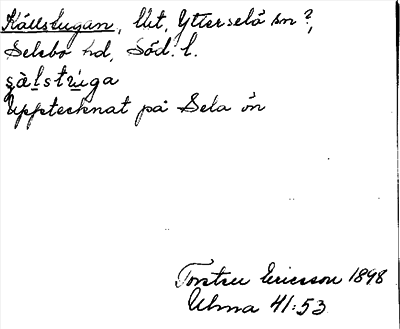 Källstugan, lht, Ytterselö sn?,
Selebo hd, Söd. l.
Upptecknat på Sela ön
Torsten Ericsson 1898
Ulma 41:53